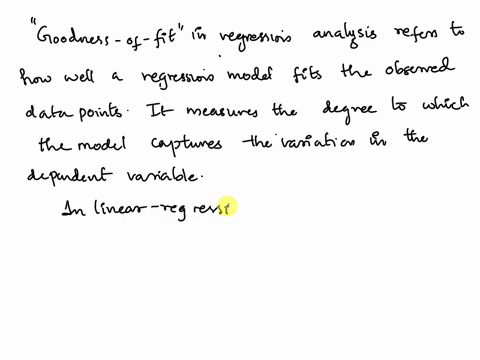 "Goodness-of-fit" in regression analysis refers to
how well a regression model fits the observed
data points. It measures the degree to which
the model captures the variation in the
dependent variable.
In linear-regressi